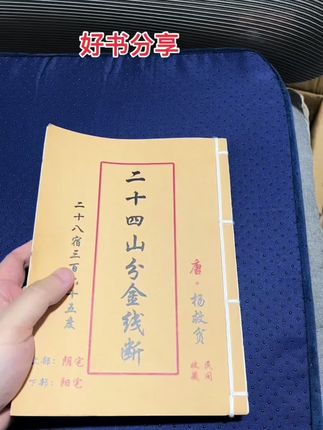 好书分享
唐·杨救贫
民间
收藏
二十四山分金线断
二十八宿三百六十五度
上部：阴宅
下部：阳宅